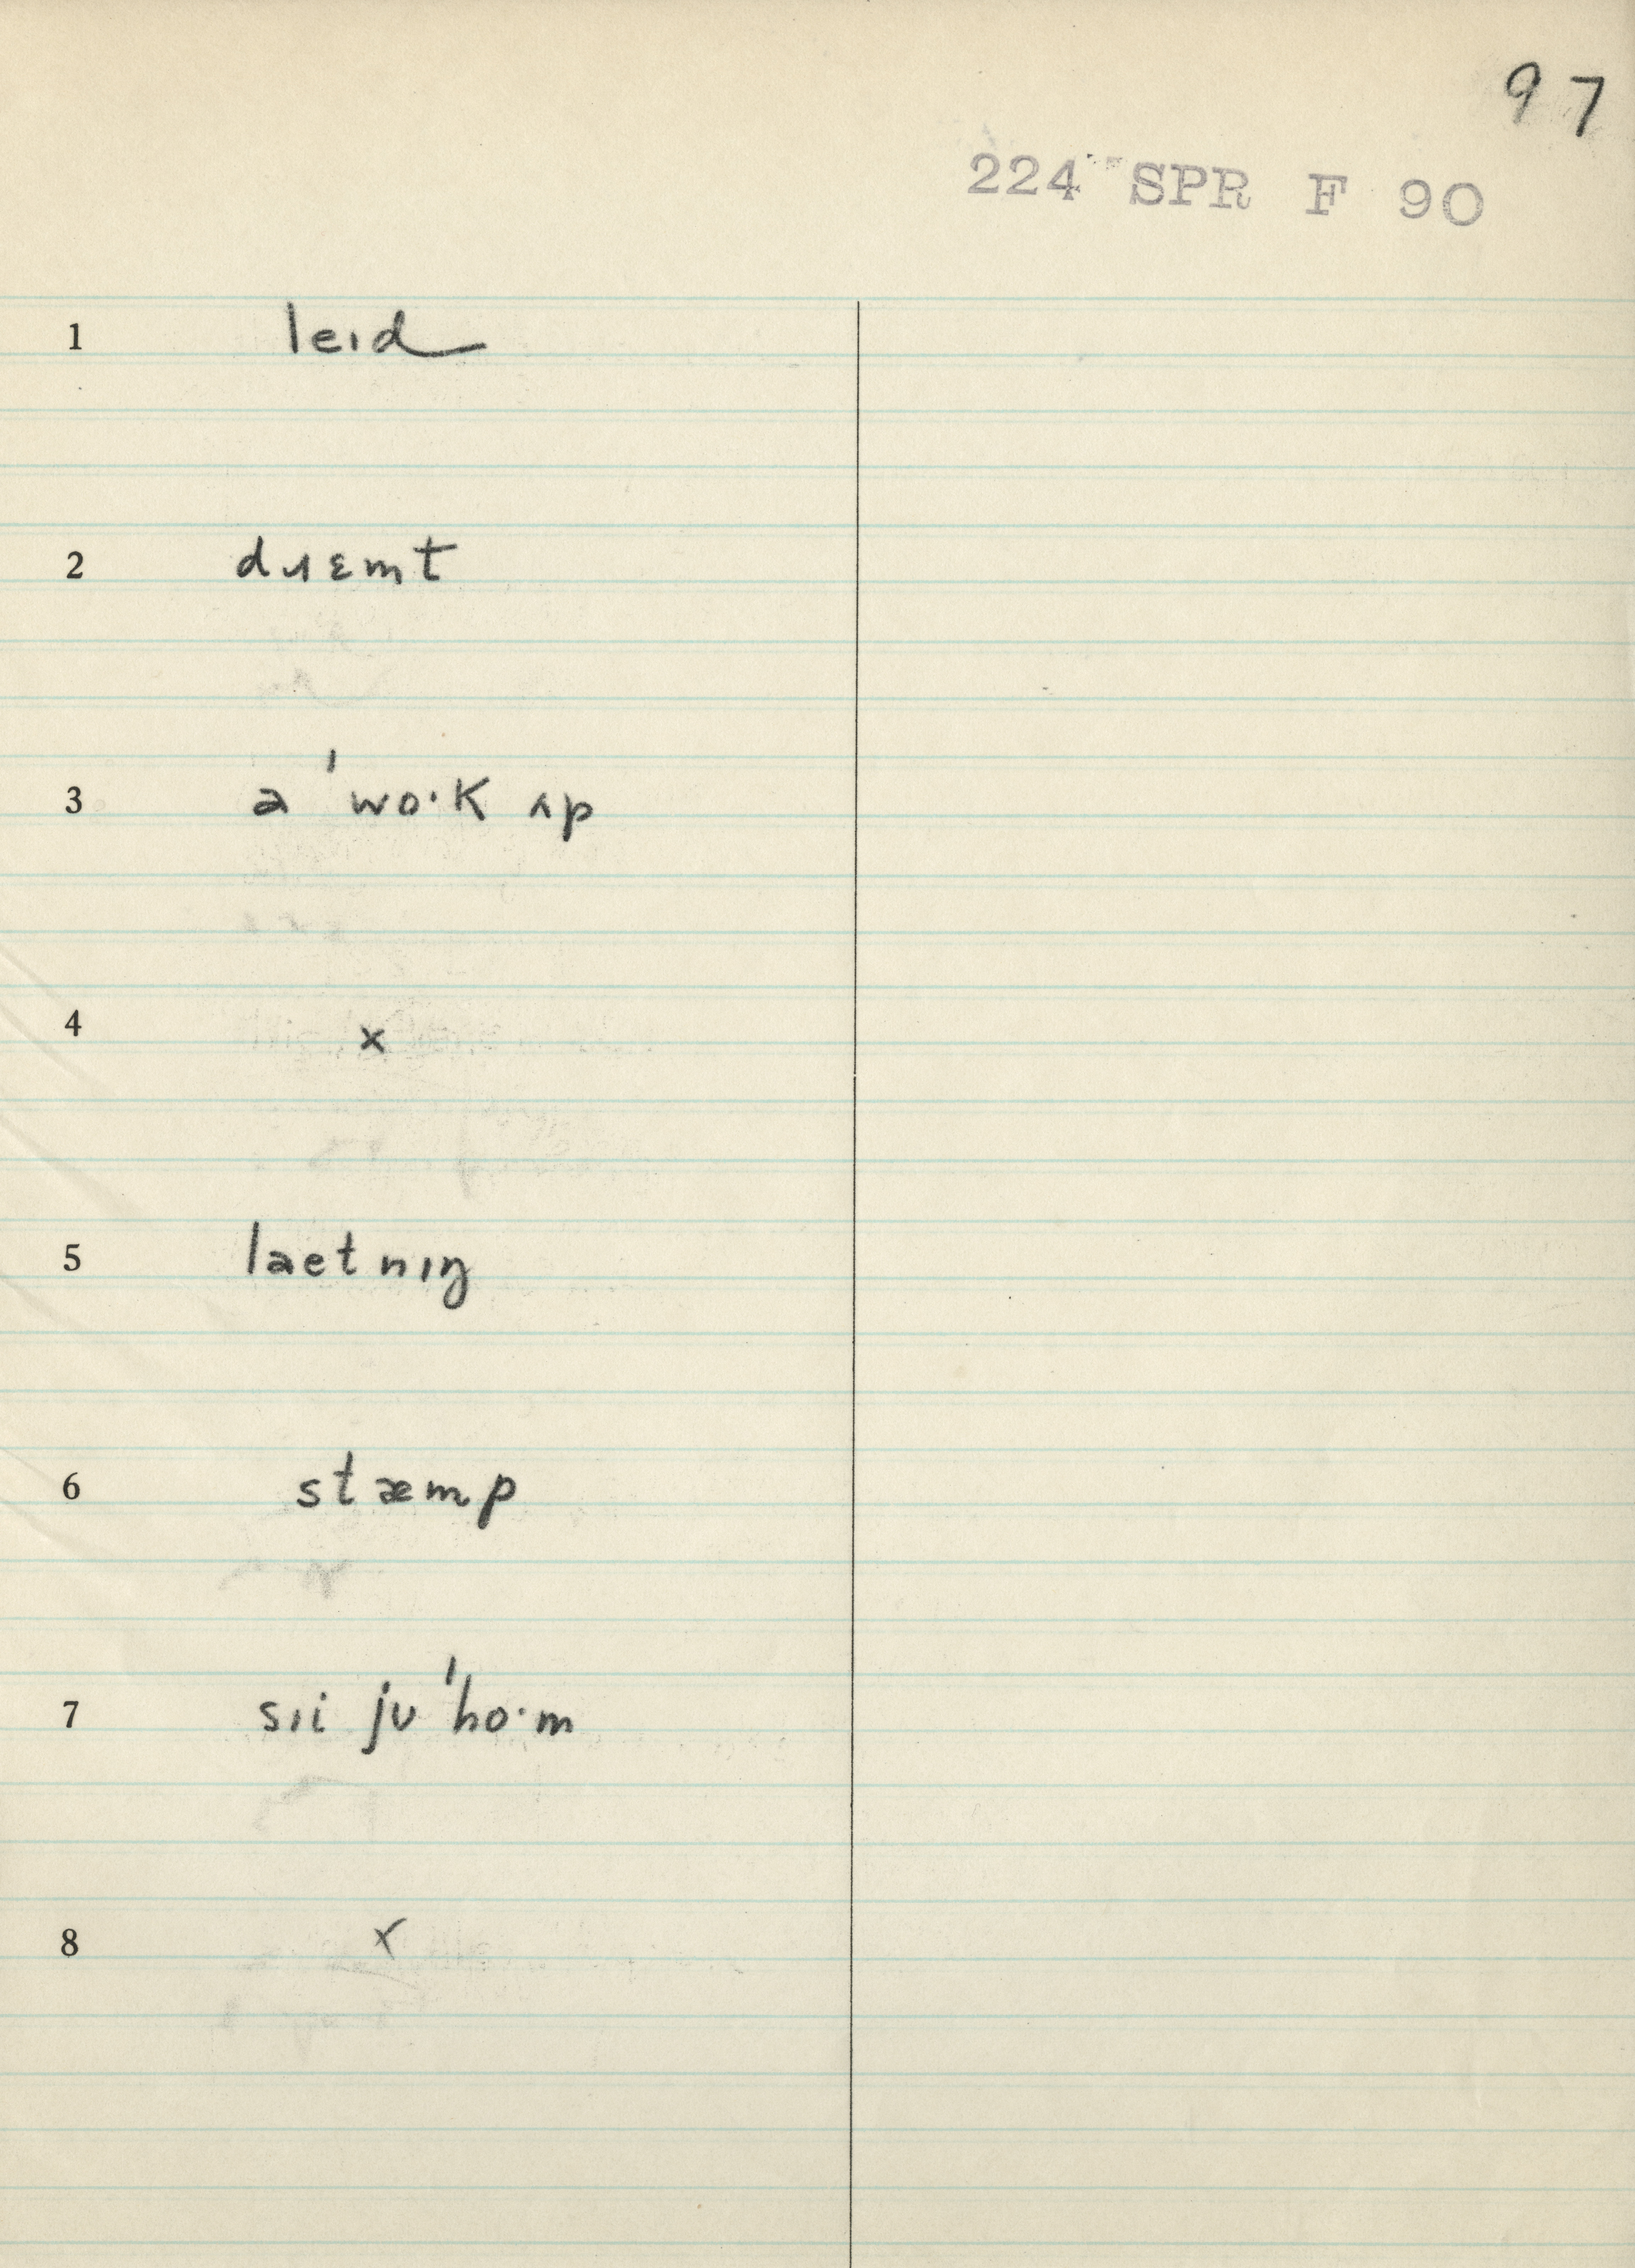 97
224 SPR F 90
1 leɪd
2 dɹɛmt
3 ə ˈwo·k ʌp
4 x
5 laetnɪŋ
6 stæmp
7 sɪi jʊ ˈho·m
8 x